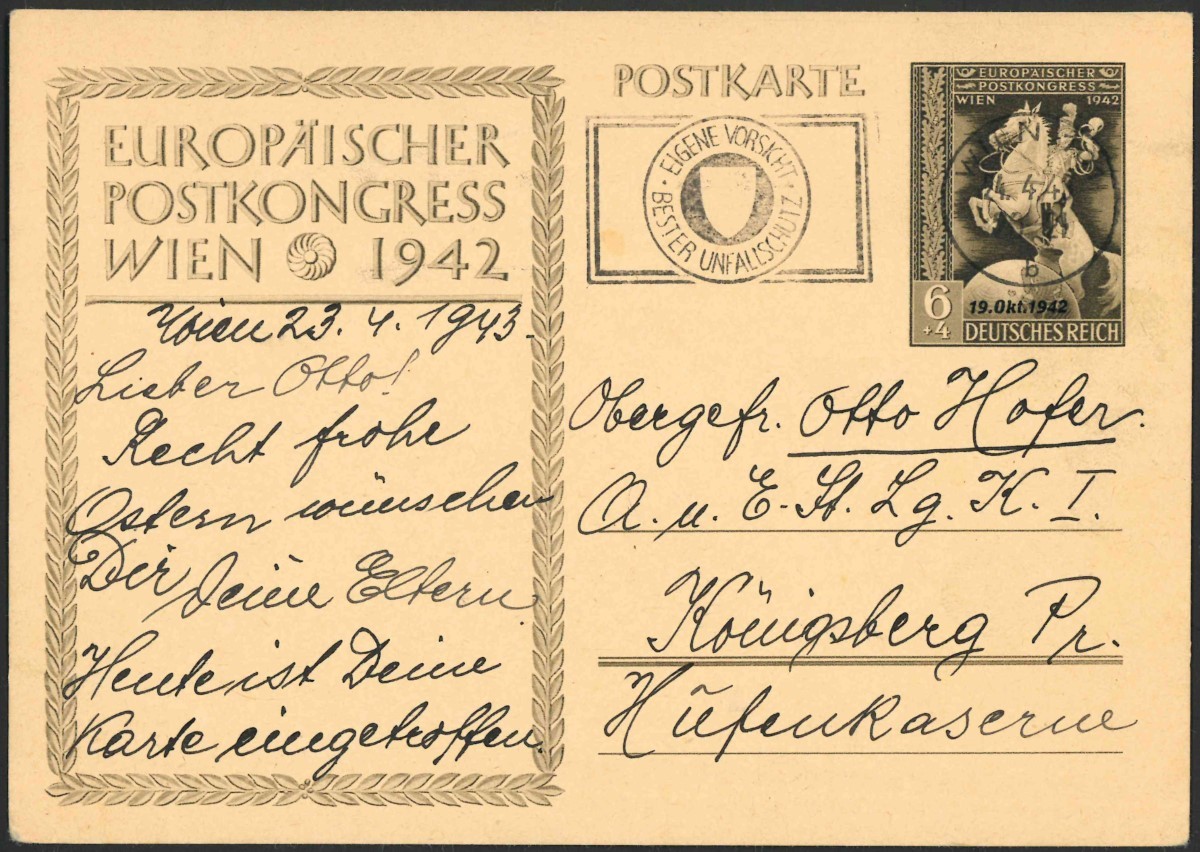 EUROPÄISCHER
POSTKONGRESS
WIEN 1942
Wien 23. 4. 1943.
Lieber Otto!
Recht frohe
Ostern wünschen
Dir Deine Eltern
Heute ist Deine
Karte eingetroffen.
POSTKARTE
EIGENE VORSICHT
BESTER UNFALLSCHUTZ
EUROPÄISCHER
POSTKONGRESS
WIEN 1942
WIEN
6
+4
19.Okt.1942
DEUTSCHES REICH
Obergefr. Otto Hofer.
A. u. E. St. Lg. K. I.
Königsberg Pr.
Hufenkaserne